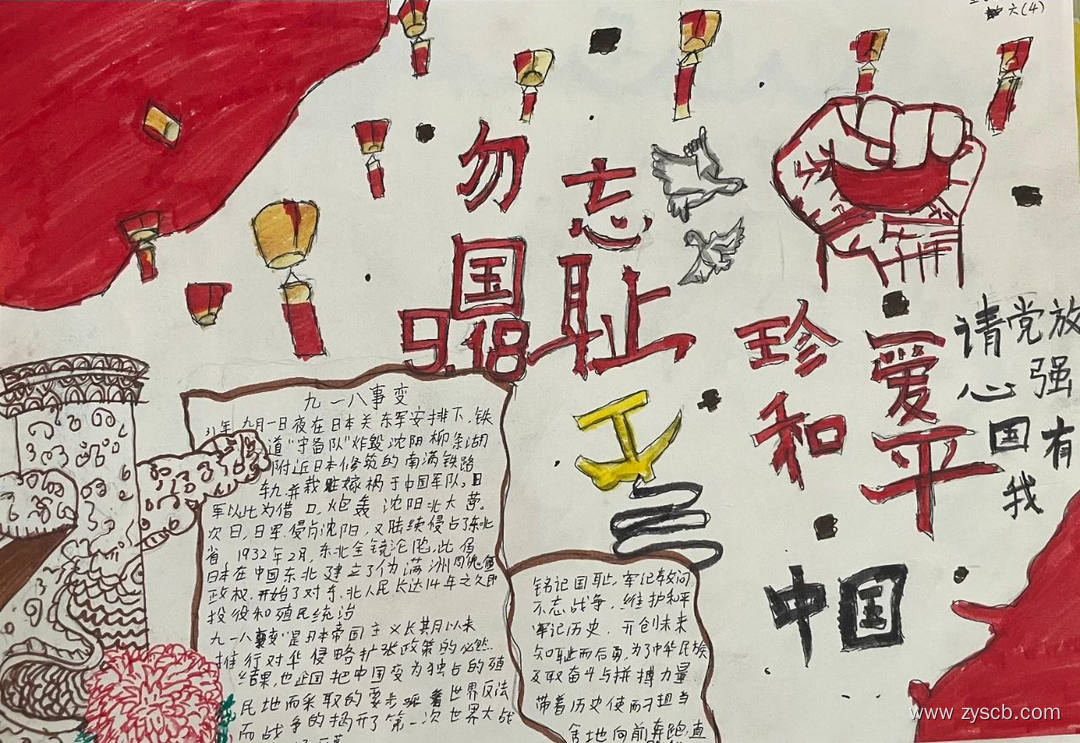 六(4)
勿忘
国耻
9.18
珍爱
和平
请党放
心强
国有
我
中国
九一八事变
31年九月一日夜在日本关东军安排下,铁
道"守备队"炸毁沈阳柳条湖
附近日本修筑的南满铁路
轨并栽赃嫁祸于中国军队,日
军以此为借口,炮轰沈阳北大营。
次日,日军侵占沈阳,又陆续侵占了东北
省 1932年2月,东北全
日本在中国东北建立了伪满洲
政权,开始了对东北人民长达14年之久
投役和殖民统治
九一八事变是日本帝国主义长其月以来
推行对华侵略扩张政策的必然
结果,也企图把中国变为独占的殖
民地而采取的 世界反法
而战争的揭开了第一次世界大战
铭记国耻,军记
不忘战争,维护和平
军记历史,开创未来
知耻而后勇,为了中华民族
奋斗与拼搏力量
带着历史使而担当
地向前奔跑直
www.zyscb.com